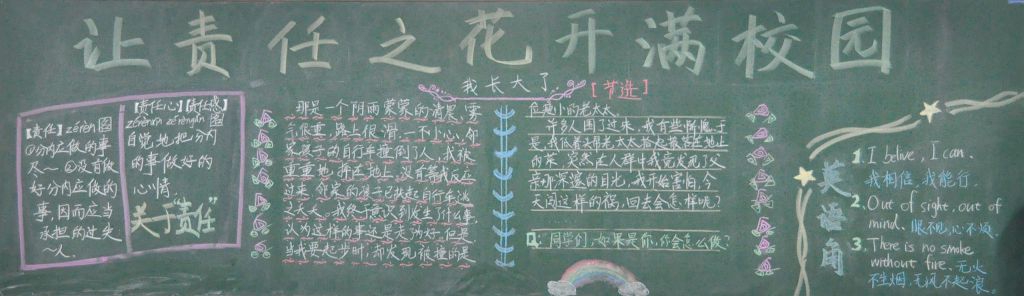 让责任之花开满校园
【责任】zérèn 图
①分内应做的事
尽～ ②没有做
好分内应做的
事，因而应当
承担的过失
～人．
【责任心】【责任感】
zérènxīn zérèngǎn
自觉地把分内
的事做好的
心情.
关于“责任”
我长大了
【节选】
那是一个阴雨蒙蒙的清晨，雾
气很重，路上很滑，一下小心，邻
家孩子动自行车撞倒了人，我被
重重地 摔在地上，没有等我反应
过来，邻家的孩子已扶起自行车逃
之夭夭，我终于意识到发生了什么事，
认为这样的事还是走为好，但是
当我要起步时，却发现 被撞的是
位矮小的老太太，
许多人围了过来，我有些慌，于
是，我低着头帮老太太拾起散落在地上
的菜，突然在人群中我竟发现了父
亲那深邃的目光，我开始害怕，今
天闯这样的祸，回去会怎样呢？
Q：同学们，如果是你，你会怎么做？
英语角
1. I belive, I can.
我相信，我能行．
2. Out of sight, out of
mind. 眼不视，心不烦．
3. There is no smoke
without fire. 无火
不生烟，无风不起浪。